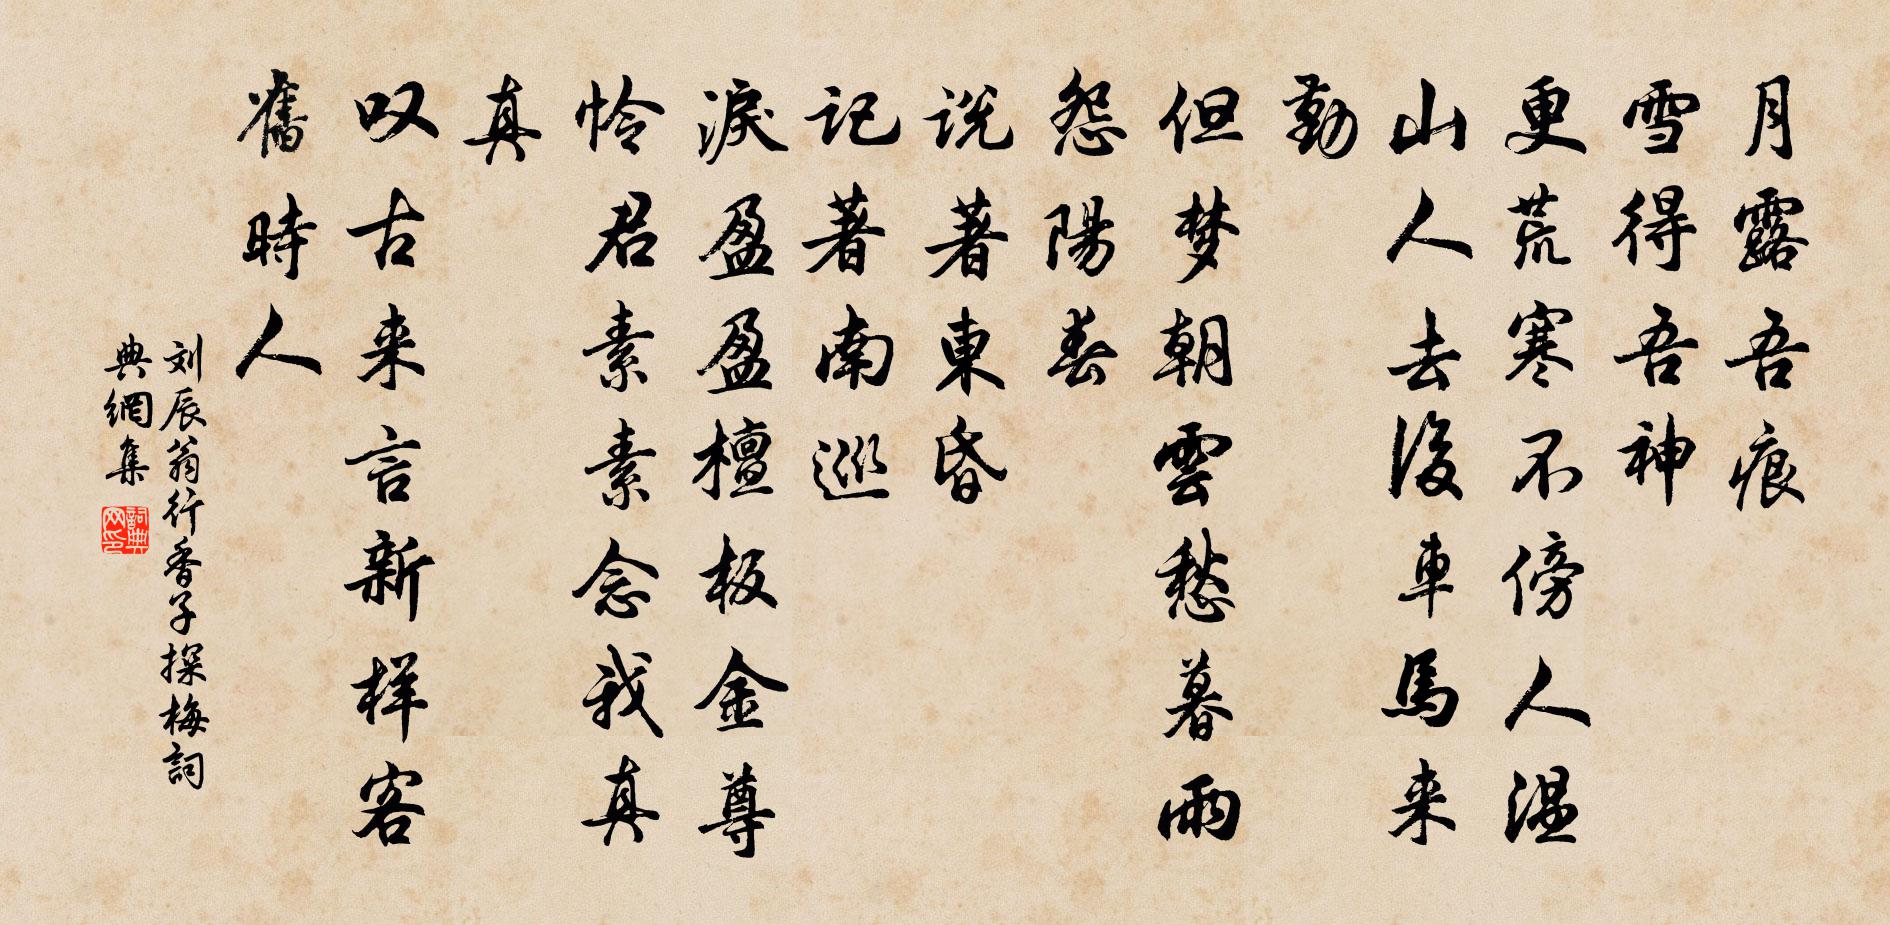 月露吾痕
雪得吾神
更荒寒不傍人温
山人去後車馬来
勤
但梦朝雲愁暮雨
怨陽春
说著東昏
记著南巡
淚盈盈檀板金尊
怜君素素念我真
真
叹古来言新样客
舊時人
刘辰翁行香子探梅詞
典網集
詞典网印